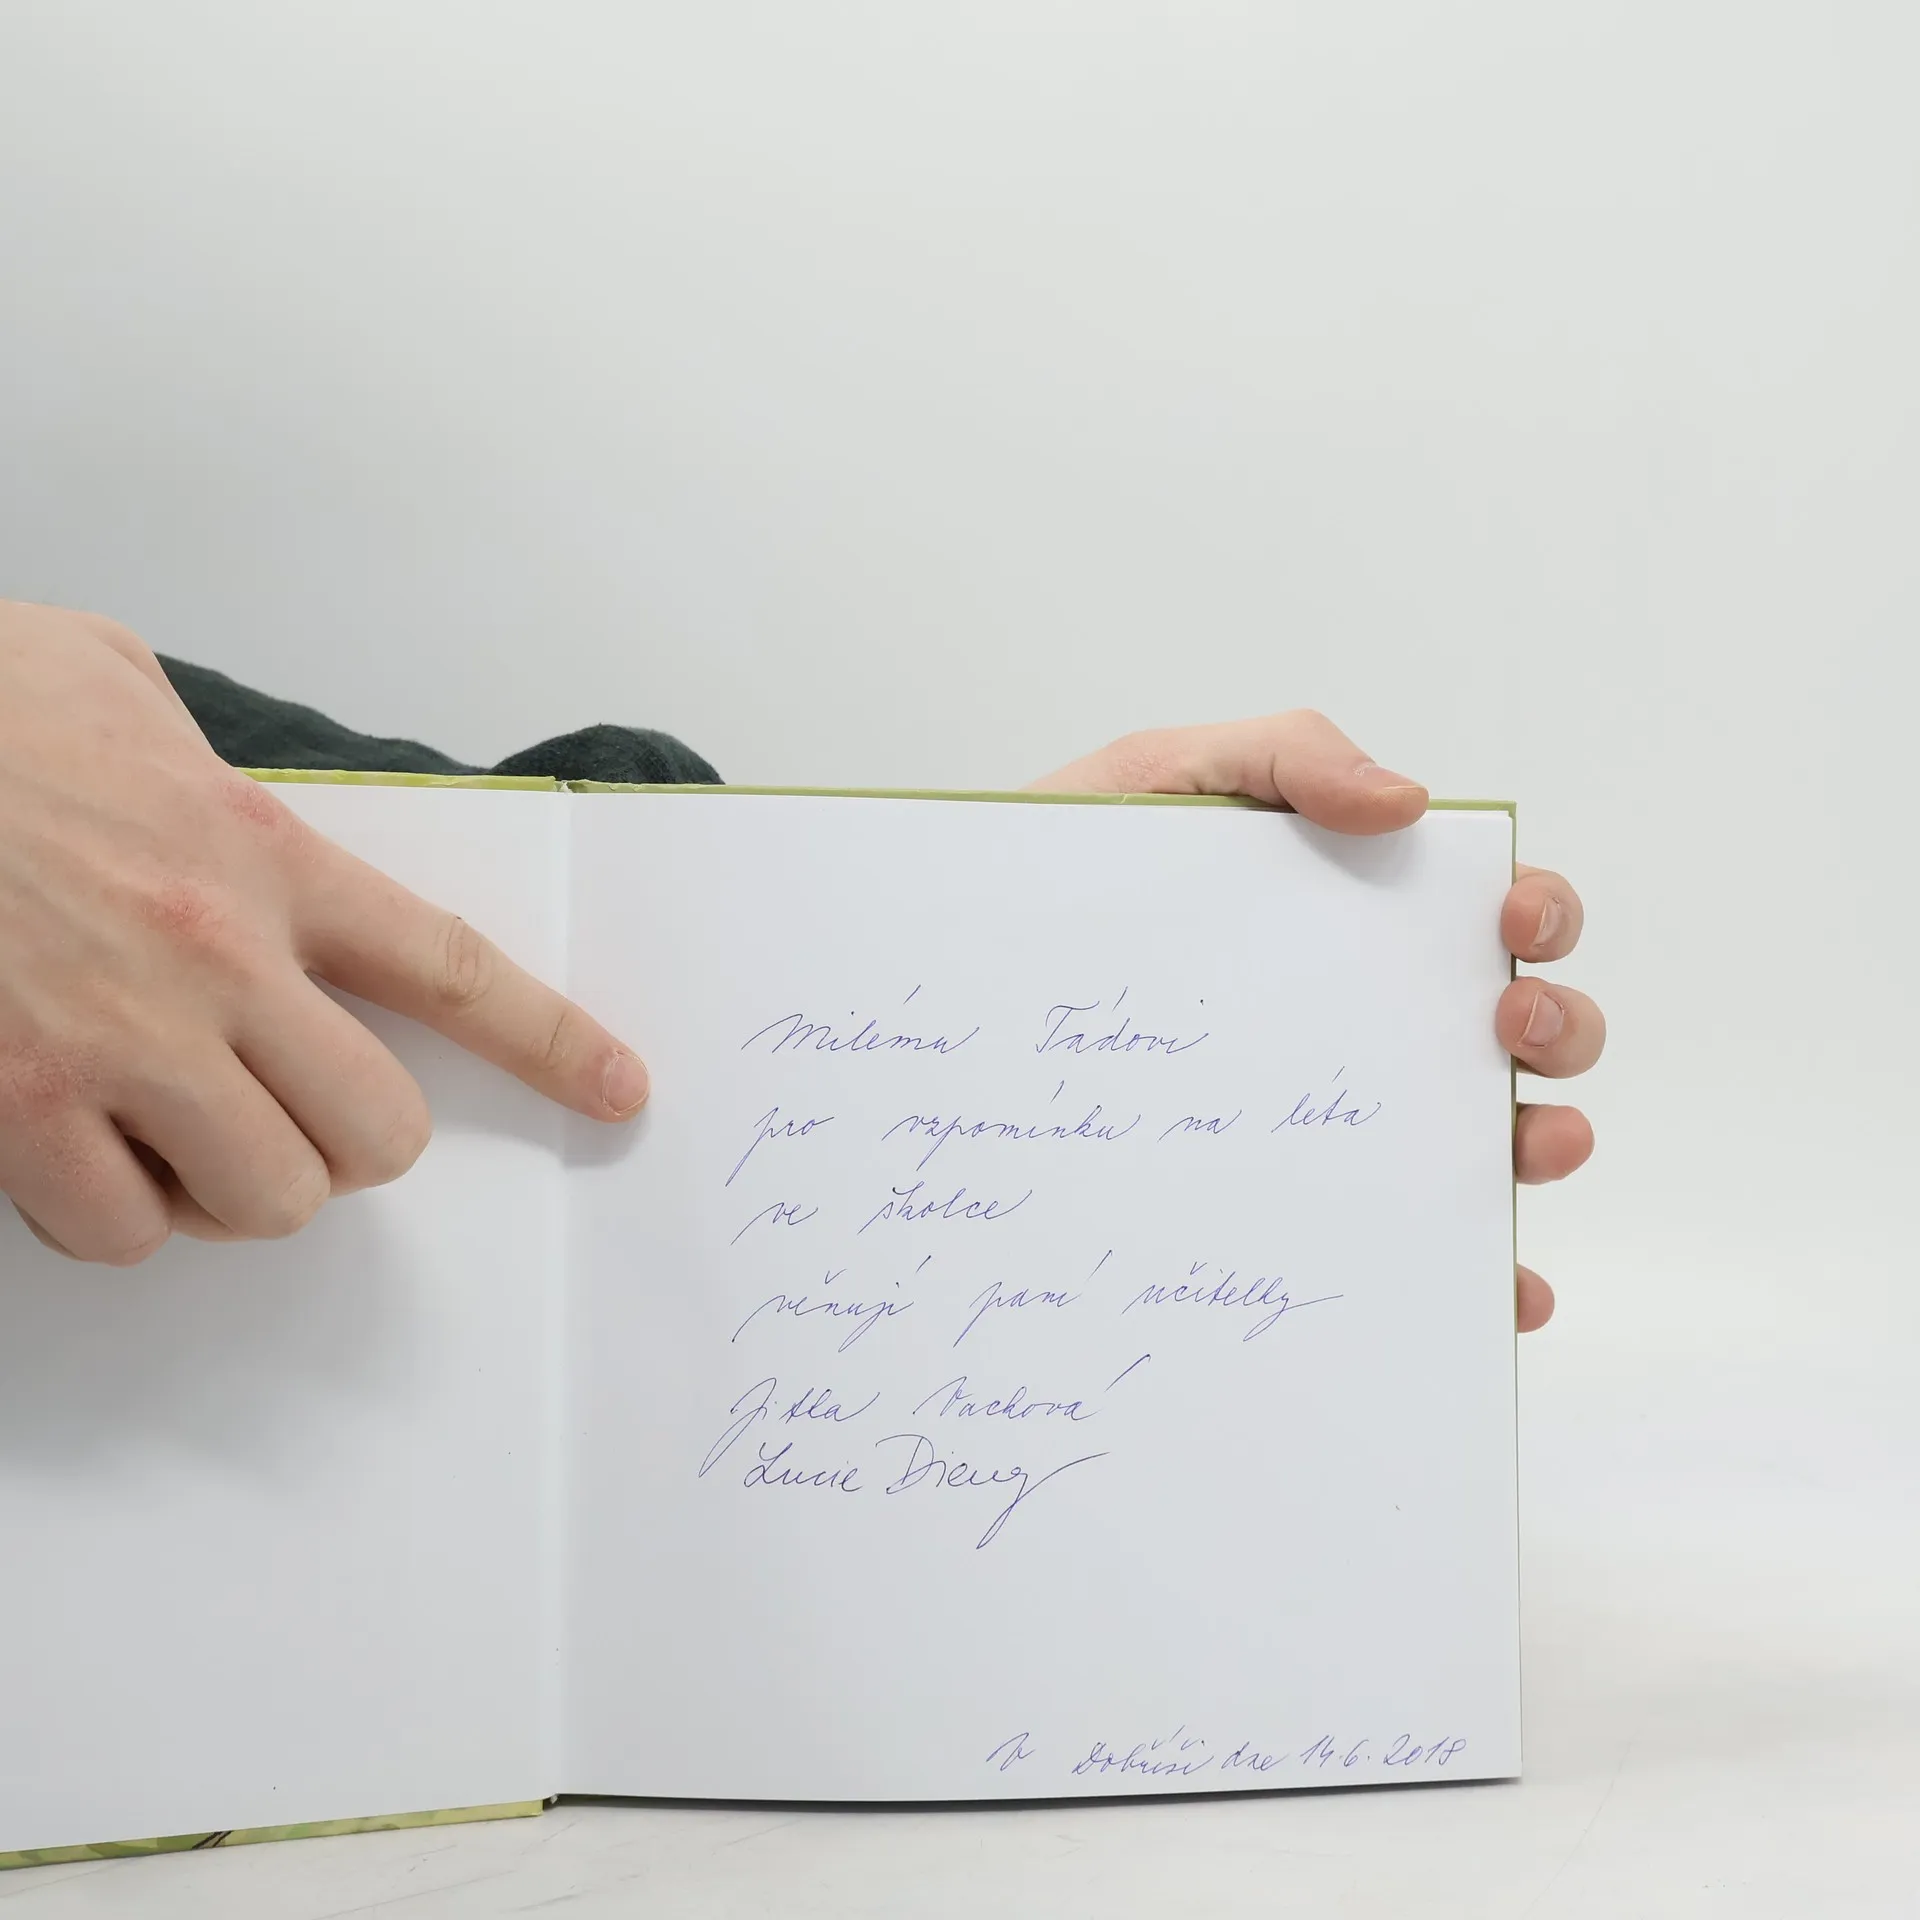 Milému Táďovi
pro vzpomínku na léta
ve školce
věnují paní učitelky
Jitka Vachová
Lucie Dieng
V Dobříši dne 14.6.2018